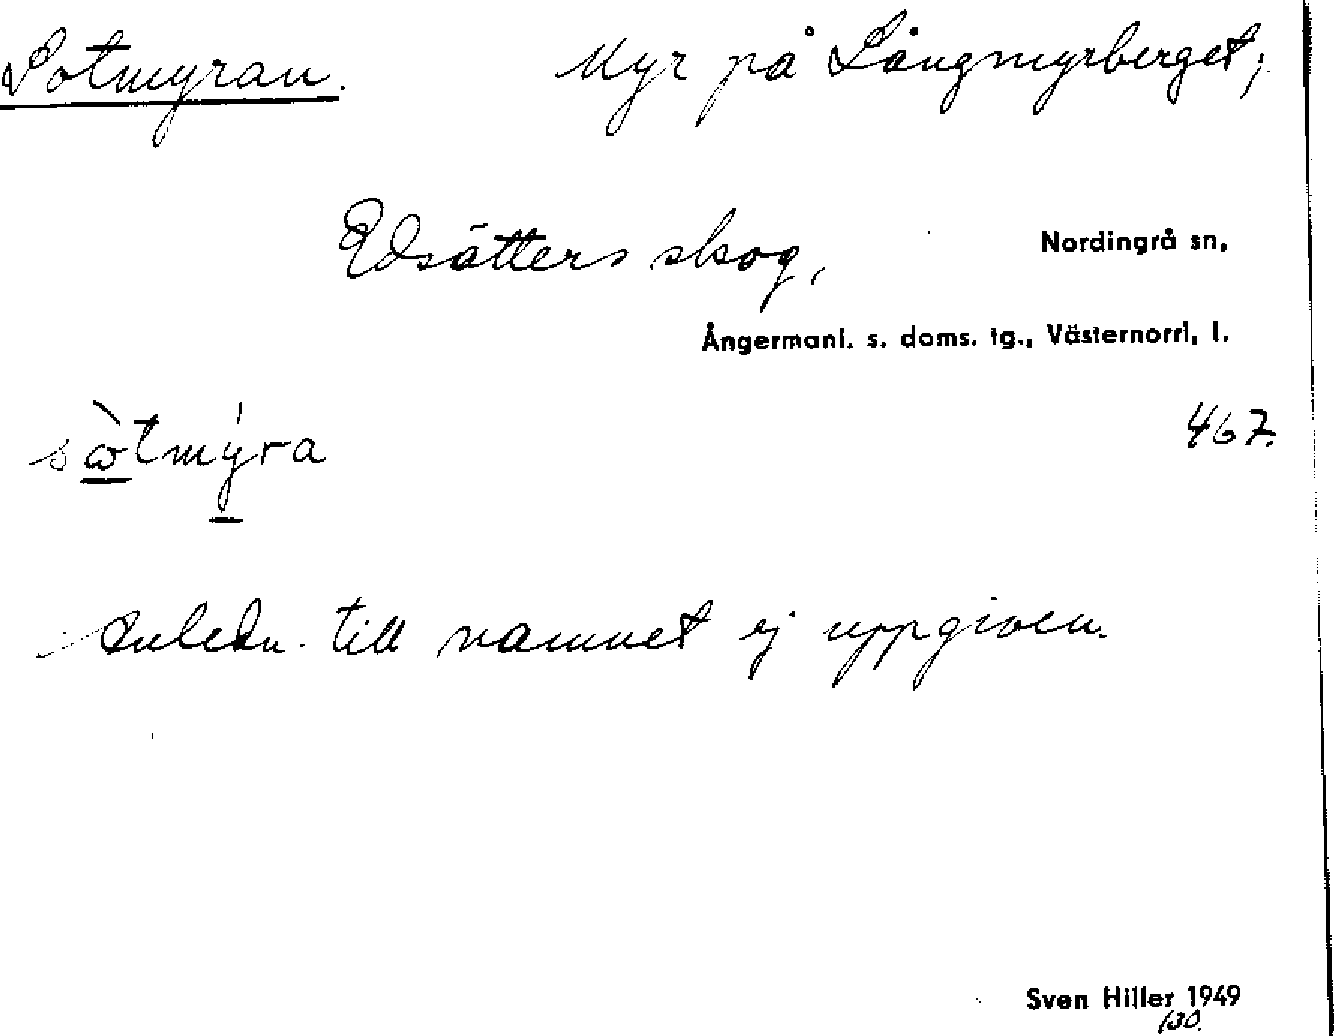 Sotmyran. Myr på Långmyrberget;
Edsätters skog, Nordingrå sn,
Ångermanl. s. doms. tg., Västernorrl. l.
467.
sɷ̀tmýra
Anledn. till namnet ej uppgiven.
Sven Hiller 1949
130.